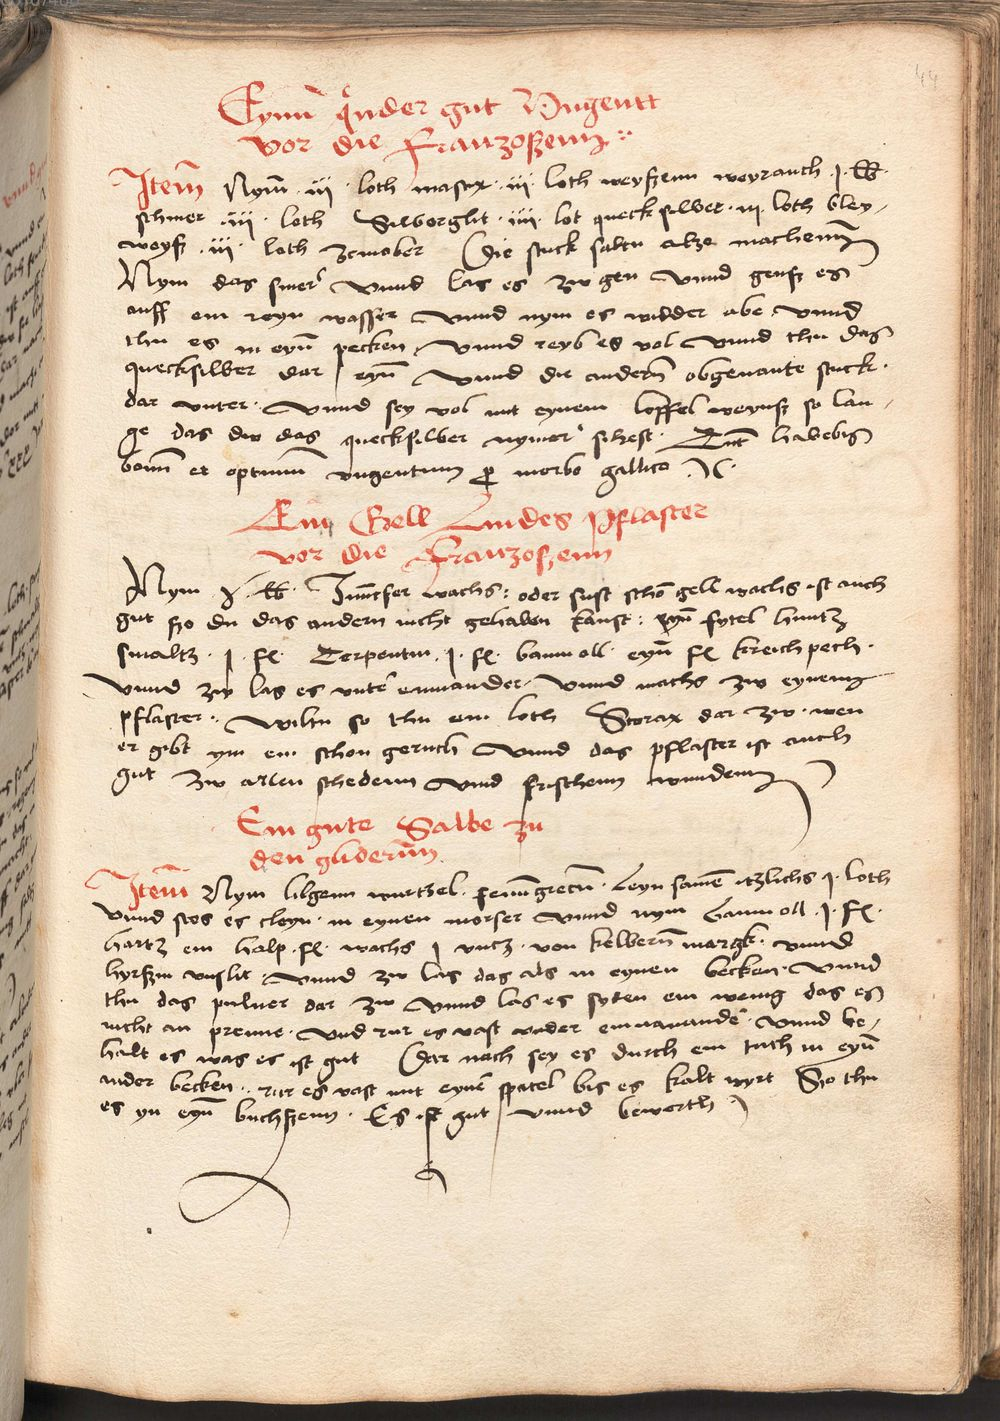 44
Eynn ander gut Vngentt
vor die Franzoßenn
Item Nym iii loth mastix iii loth weyßenn weyrauch j lb
schmer iiii loth Silberglit iiii lot quecksilber iii loth bley-
weyß iii loth zinober Die stuck saltu alße machenn
Nym das smer vnnd las es zw gen vnnd geuß es
auff ein reyn wasser vnnd nym es widder abe vnnd
thu es in eyn pecken vnnd reyb es vol vnnd thu das
quecksilber dar eyn vnnd die andern obgenante stuck
dar vnter vnnd sey vol mit eynem loffel weynß so lan-
ge das dw das quecksilber nymer sihest Tunc habebis
bonum et optimum vngentum pro morbo gallico
Ein Gell Lindes Pflaster
vor die Franzoßenn
Nym lb Junckfer wachs oder sust scho gell wachs ist auch
gut ßo du das andern nicht gehaben kanst eyn fytel huntz
smaltz j fl Terpentin j fl baumoll eyn fl kreichpech
vnnd zw las es vnter einnander vnnd machs zw eynem
pflaster wiltu so thu ein loth Storax dar zw wen
er gibt ym ein schon geruch vnnd das pflaster ist auch
gut zw allen schedenn vnnd frischenn wundenn
Ein gute Salbe zu
den gliderum
Item Nym lilgenn wurtzel fenugrecum Leyn samen itzlichs j loth
vnnd stos es cleyn in eynen morser vnnd nym baumoll j fl
hartz ein halp fl wachs j vntz von kelbern margk vnnd
hyrßin vnslit vnnd zw las das als in eynen becken vnnd
thu das puluer dar zw vnnd las es syten ein wenig das es
nicht an prenne vnd rur es vast vnder einnanander vnnd be-
halt es was es ist gut Dar nach sey es durch ein tuch in eyn
ander becken rur es vast mit eynen spatel bis es kalt wyrt So thu
es yn eyn buchßenn Es ist gut vnnd bewerth